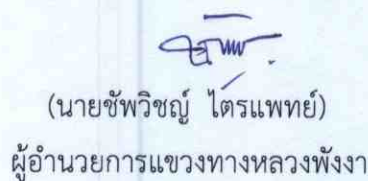 (นายชัพวิชญ์ ไตรแพทย์)
ผู้อำนวยการแขวงทางหลวงพังงา